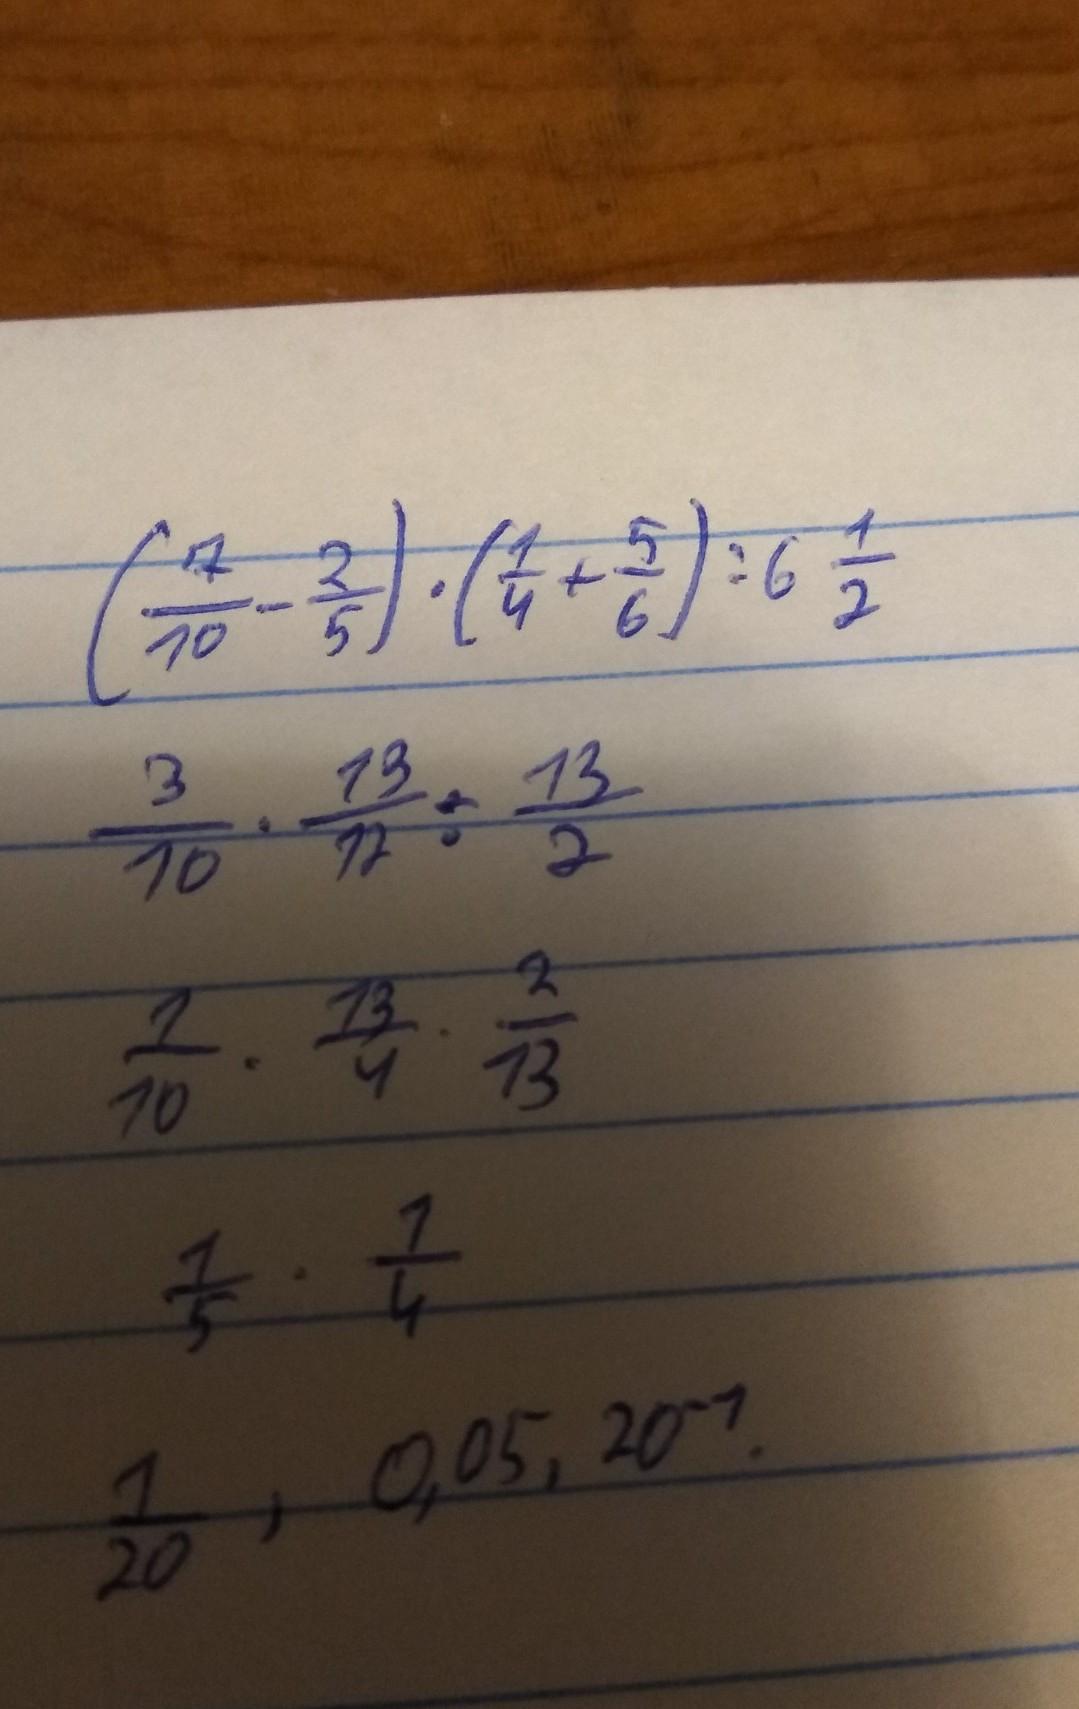 (7/10 - 2/5) · (1/4 + 5/6) : 6 1/2
3/10 · 13/12 ÷ 13/2
1/10 · 13/4 · 2/13
1/5 · 1/4
1/20 , 0,05, 20⁻¹.